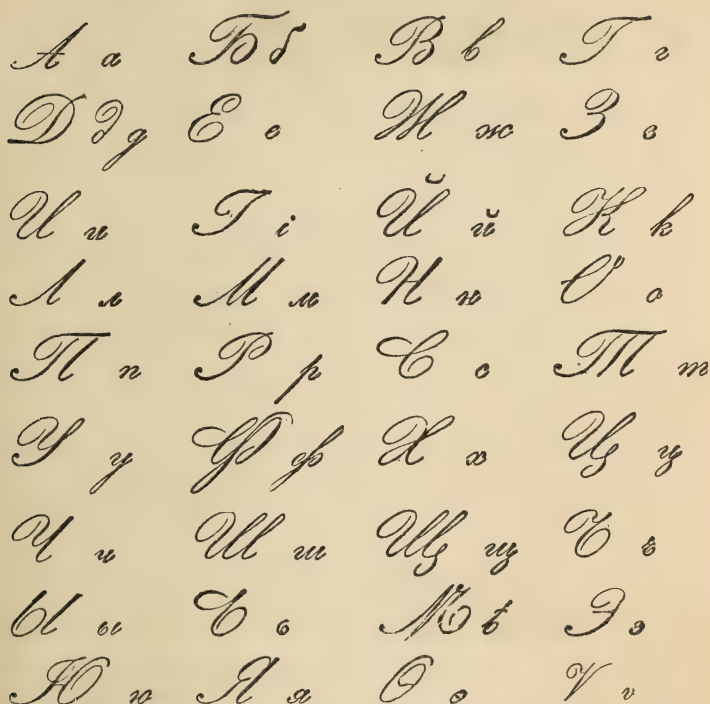 А а Б б В в Г г
Д д д Е е Ж ж З з
И и І і Й й К к
Л л М м Н н О о
П п Р р С с Т т
У у Ф ф Х х Ц ц
Ч ч Ш ш Щ щ Ъ ъ
Ы ы Ь ь Ѣ ѣ Э э
Ю ю Я я Ѳ ѳ Ѵ ѵ